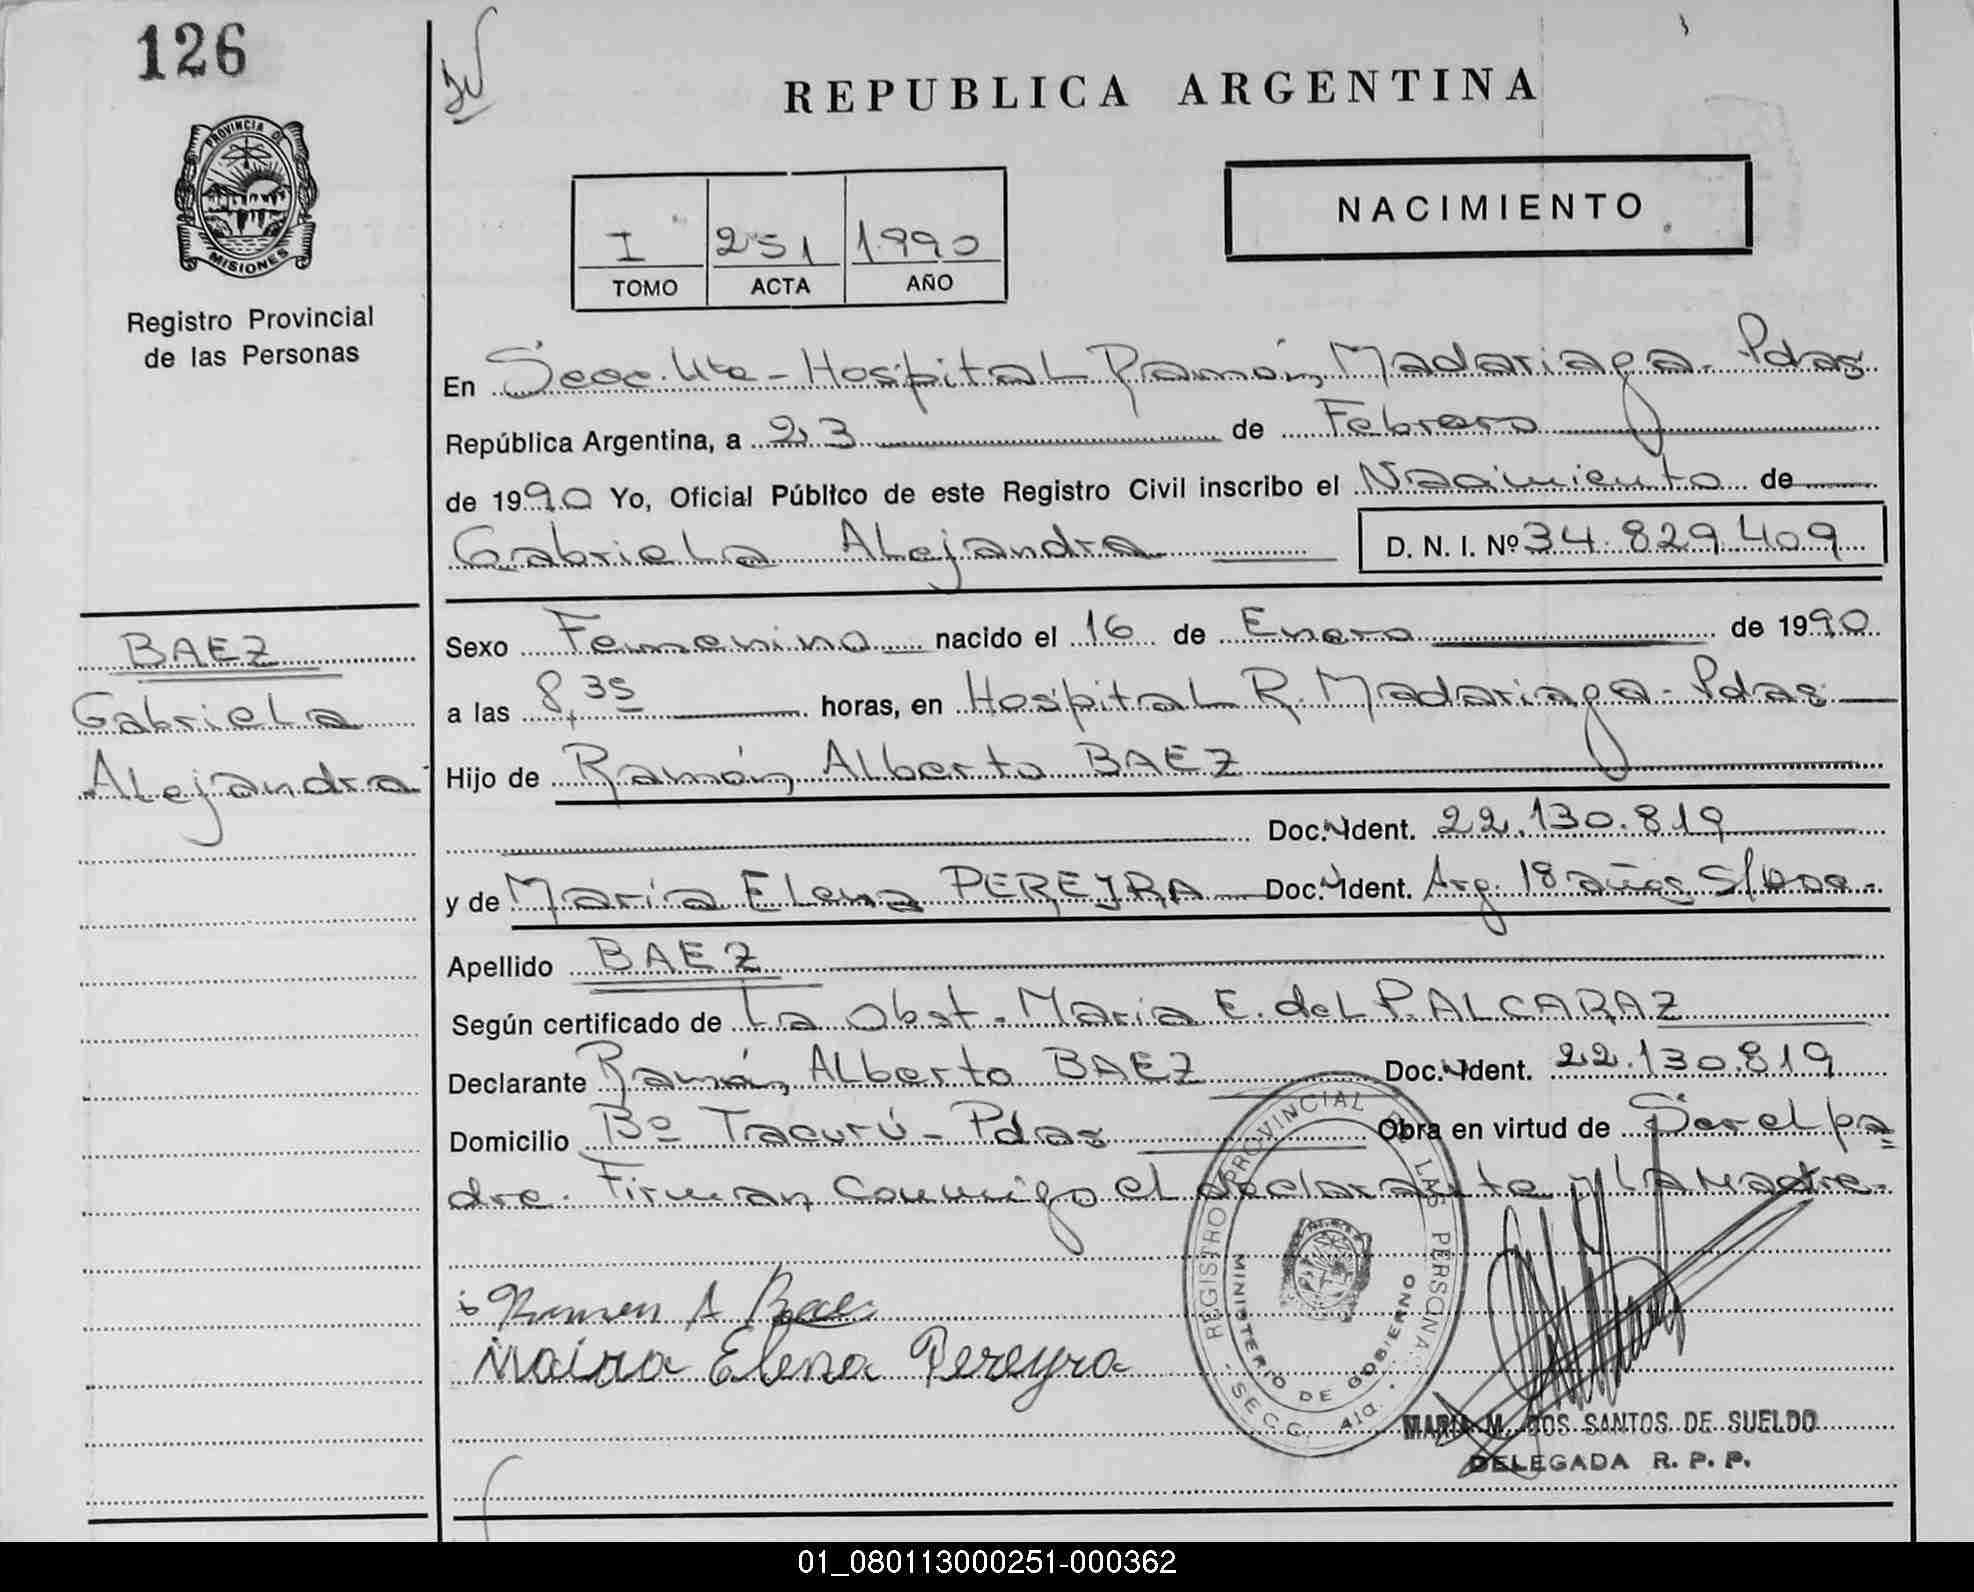 126
REPUBLICA ARGENTINA
PROVINCIA DE
MISIONES
Registro Provincial
de las Personas
I 251 1990
TOMO ACTA AÑO
NACIMIENTO
En Secc. 4ta - Hospital Ramón Madariaga - Pdas
República Argentina, a 23 de Febrero
de 1990 Yo, Oficial Público de este Registro Civil inscribo el Nacimiento de
Gabriela Alejandra D. N. I. Nº 34.829.409
BAEZ
Gabriela
Alejandra
Sexo Femenino nacido el 16 de Enero de 1990
a las 8,35 horas, en Hospital R. Madariaga - Pdas
Hijo de Ramón Alberto BAEZ
Doc. Ident. 22.130.819
y de María Elena PEREYRA Doc. Ident. Arg. 18 años S/Doc.
Apellido BAEZ
Según certificado de La Obst. María E. del P. ALCARAZ
Declarante Ramón Alberto BAEZ Doc. Ident. 22.130.819
Domicilio Bº Tacurú - Pdas Obra en virtud de Ser el pa=
dre. Firman conmigo el declarante y la Madre.
Ramon A Bae
Maira Elena Pereyra
REGISTRO PROVINCIAL DE LAS PERSONAS
MINISTERIO DE GOBIERNO
SECC. 4ta.
MARIA M. DOS SANTOS DE SUELDO
DELEGADA R. P. P.
01_080113000251-000362